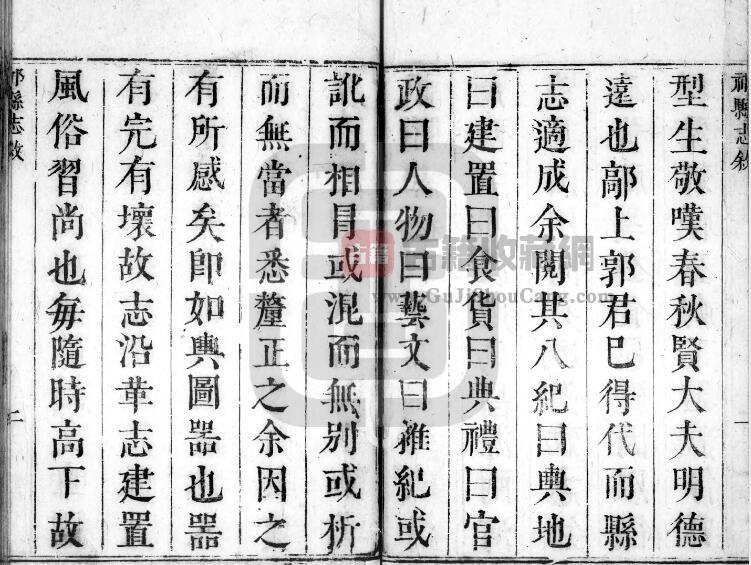 祁縣志敘
一
型生敬嘆春秋賢大夫明德
遠也鄗上郭君巳得代而縣
志適成余閱其八紀曰輿地
曰建置曰食貨曰典禮曰官
政曰人物曰藝文曰雜紀或
訛而相冐或混而無别或析
而無當者悉釐正之余因之
有所感矣卽如輿圖器也器
有完有壞故志沿革志建置
風俗習尚也每隨時高下故
祁縣志敘
二
古籍
古籍收藏網
www.GuJiShouCang.com